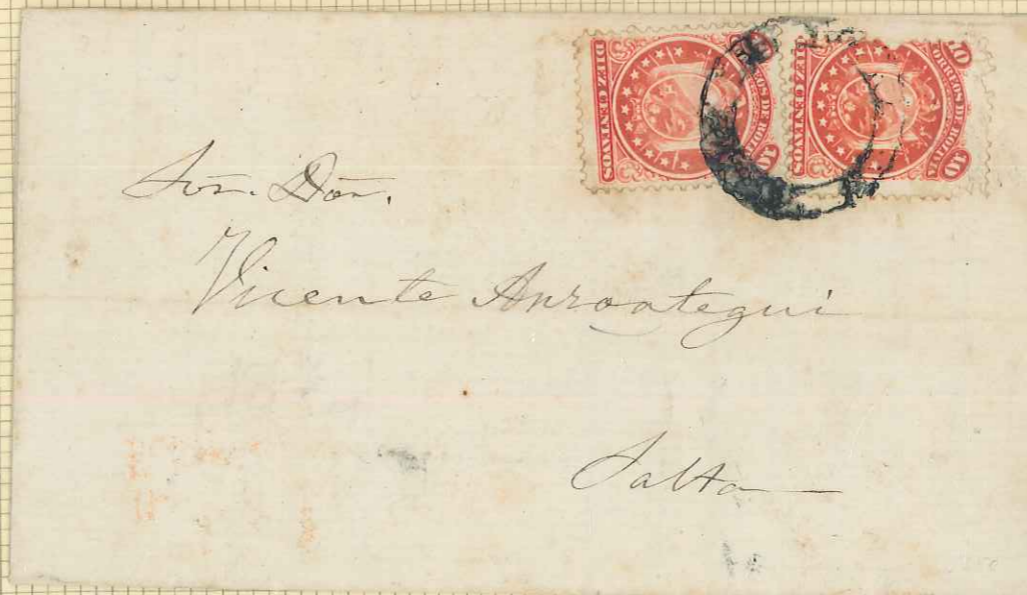 Sõr. Dõn.
Vicente Anzoategui
Salta
DIEZ CENTAVOS
CORREOS DE BOLIVIA
10
DIEZ CENTAVOS
CORREOS DE BOLIVIA
10
10